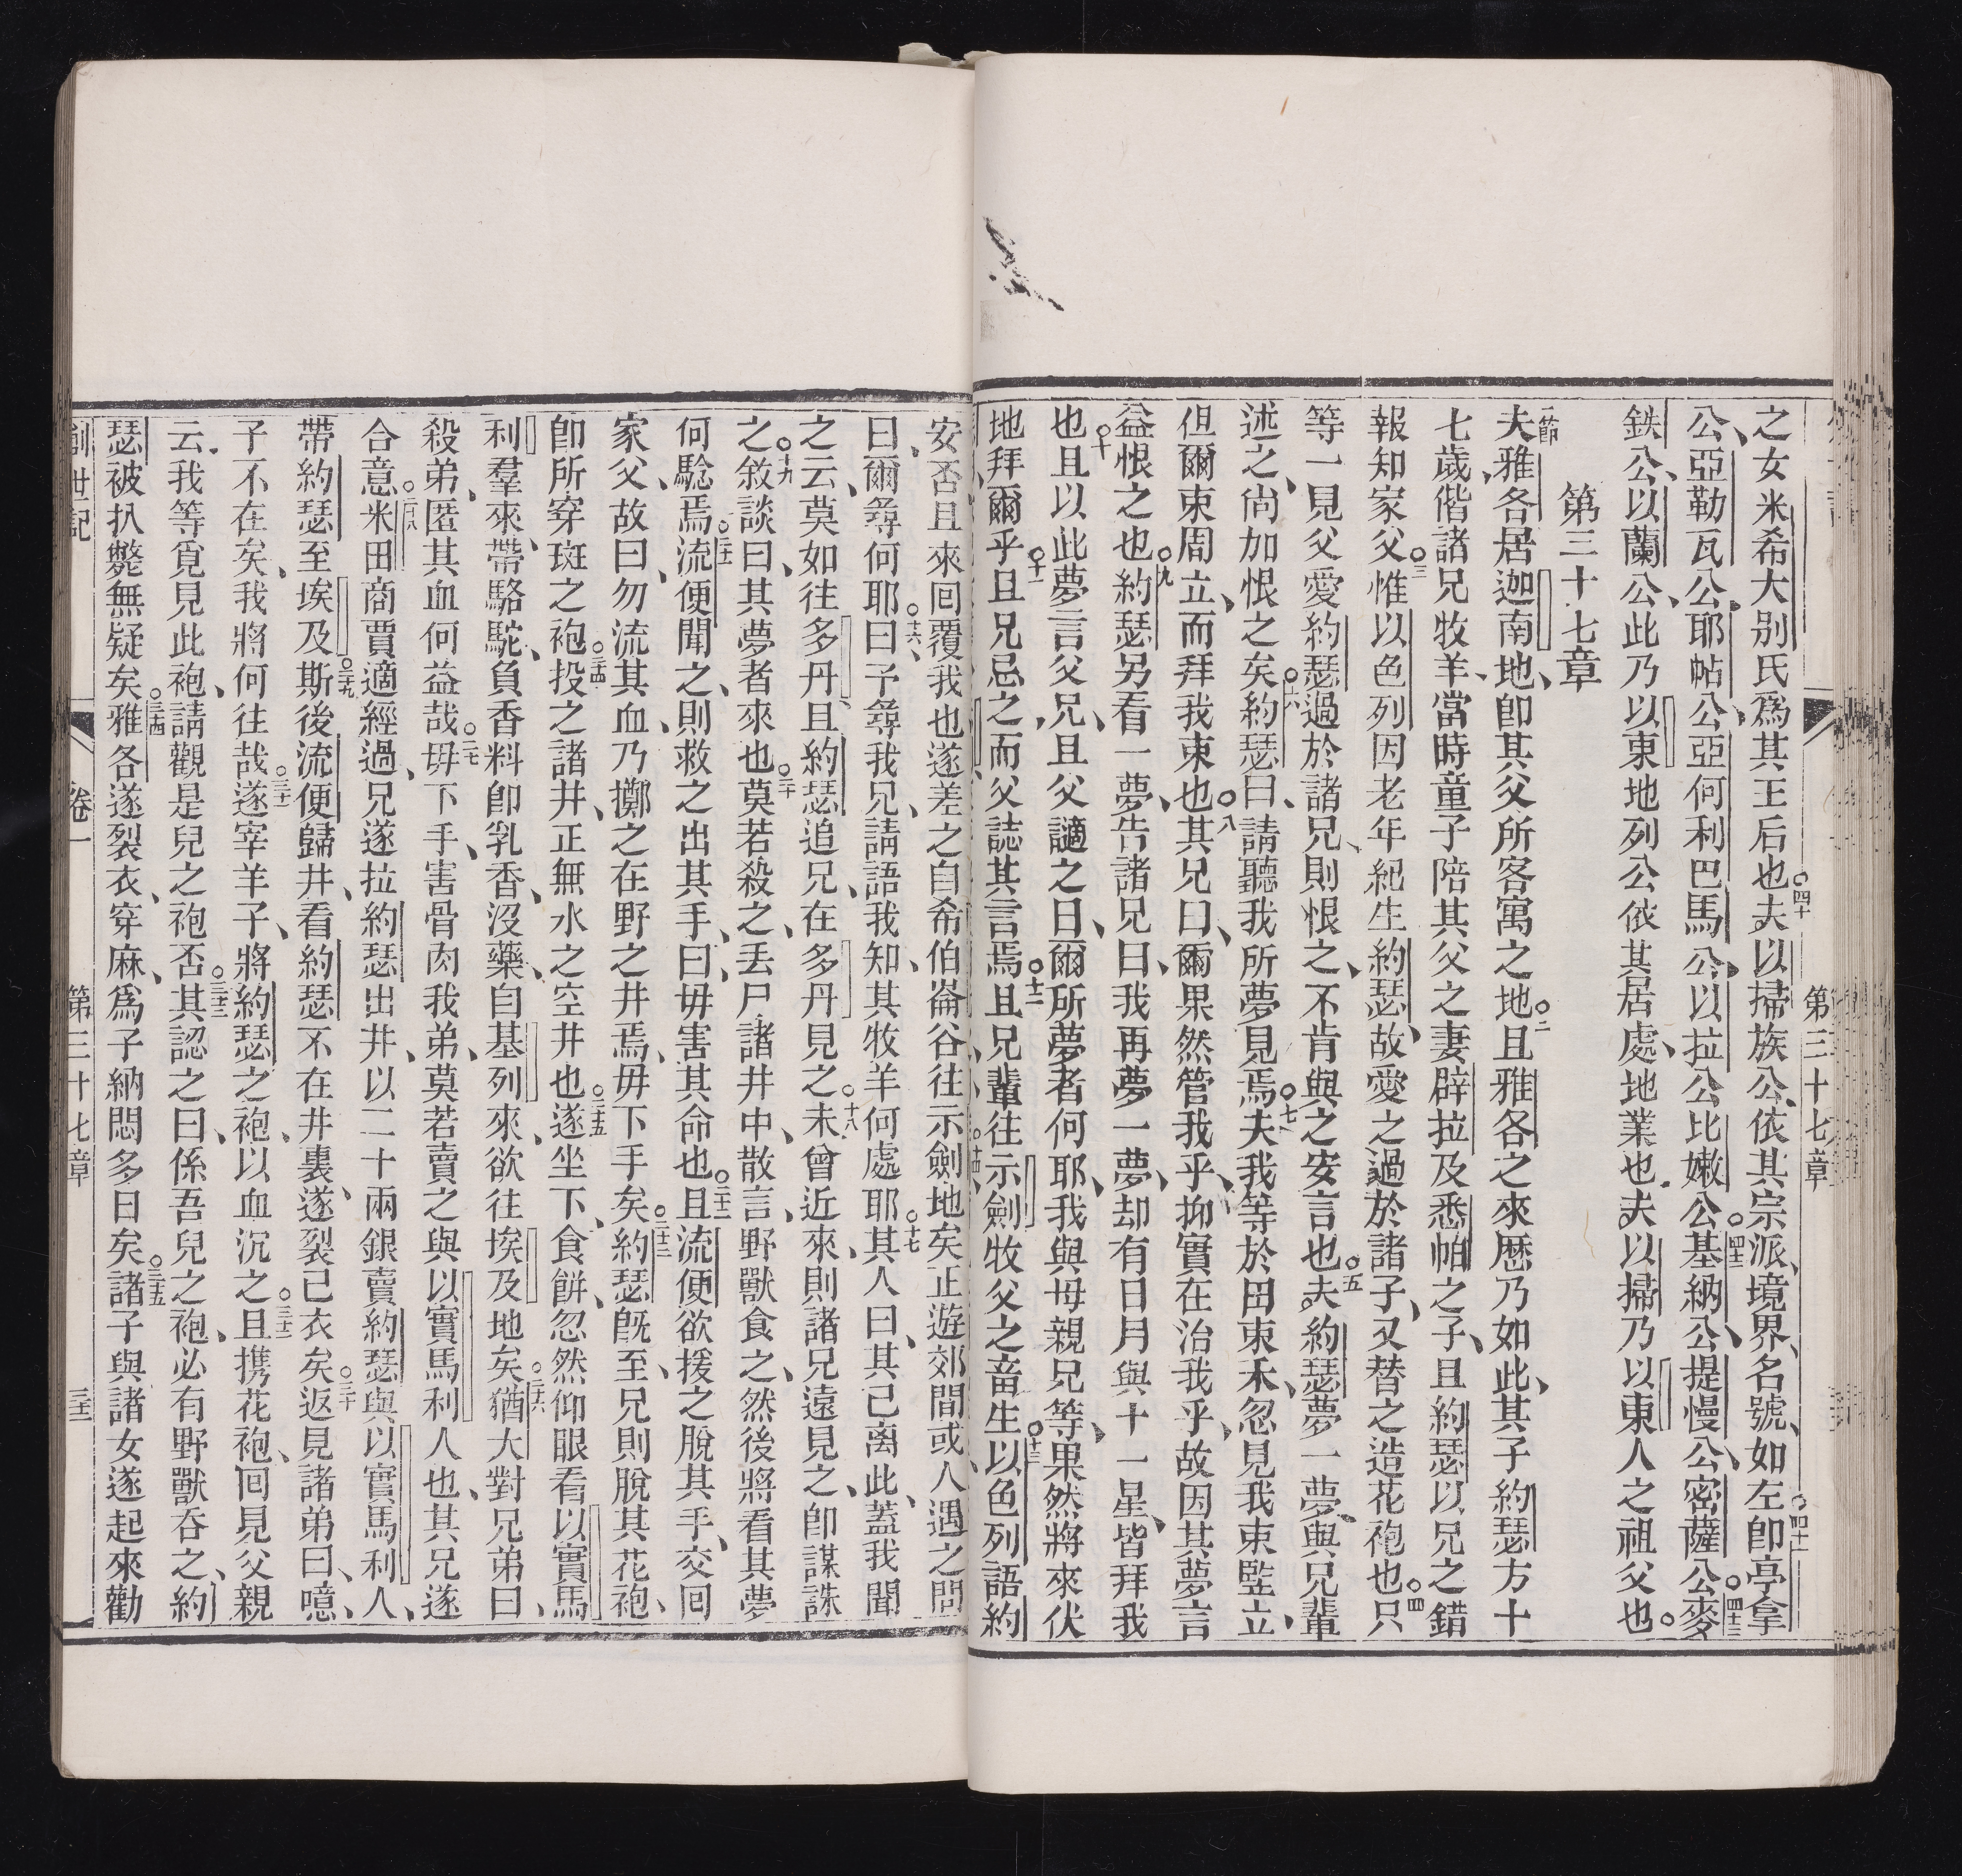 第三十七章
之女米希大别氏爲其王后也○四十夫以掃族公、依其宗派、境界、名號、如左○四十一卽亭拿
公、亞勒瓦公、耶帖公、亞何利巴馬公、以拉公比嫩公○四十二基納公、提慢公、密薩公○四十三麥
鉄公、以蘭公、此乃以東地列公依其居處、地業也、夫以掃乃以東人之祖父也。
第三十七章
一節夫雅各居迦南地、卽其父所客寓之地○二且雅各之來歷乃如此、其子約瑟方十
七歲、偕諸兄牧羊、當時童子陪其父之妻辟拉及悉帕之子、且約瑟以兄之錯
報知家父○三惟以色列因老年紀生約瑟、故愛之過於諸子、又替之造花袍也○四只
等一見父愛約瑟過於諸兄、則恨之、不肯與之安言也○五夫約瑟夢一夢、與兄輩
述之、尙加恨之矣○六約瑟曰、請聽我所夢見焉○七夫我等於田束禾、忽見我束竪立、
但爾束周立、而拜我束也○八其兄曰、爾果然管我乎、抑實在治我乎、故因其夢言
益恨之也○九約瑟另看一夢、告諸兄曰、我再夢一夢、却有日月與十一星、皆拜我
也○十且以此夢言父兄、且父謫之曰、爾所夢者何耶、我與母親兄等、果然將來伏
地拜爾乎○十一且兄忌之、而父誌其言焉○十二且兄輩往示劍牧父之畜生○十三以色列語約
安否且來回覆我也遂差之自希伯崙谷往示劍地矣正遊郊間或人遇之問
曰、爾尋何耶○十六曰、予尋我兄、請語我知、其牧羊何處耶○十七其人曰、其己离此、蓋我聞
之云、莫如往多丹、且約瑟追兄、在多丹見之○十八未曾近來、則諸兄遠見之、卽謀誅
之○十九敘談曰、其夢者來也○二十莫若殺之、丢尸諸井中、散言、野獸食之、然後將看其夢
何騐焉○二十一流便聞之、則救之出其手、曰、毋害其命也○二十二且流便欲援之脫其手、交回
家父、故曰、勿流其血、乃擲之在野之井焉、毋下手矣○二十三約瑟旣至、兄則脫其花袍、
卽所穿斑之袍○二十四投之諸井、正無水之空井也○二十五遂坐下、食餅、忽然仰眼看以實馬
利羣來、帶駱駝、負香料卽乳香、沒藥、自基列來、欲往埃及地矣○二十六猶大對兄弟曰、
殺弟、匿其血何益哉○二十七毋下手、害骨肉我弟、莫若賣之與以實馬利人也、其兄遂
合意○二十八米田商賈適經過、兄遂拉約瑟出井、以二十兩銀賣約瑟與以實馬利人、
帶約瑟至埃及斯○二十九後流便歸井、看約瑟不在井裏、遂裂己衣矣○三十返見諸弟曰、噫、
子不在矣、我將何往哉○三十一遂宰羊子、將約瑟之袍、以血沉之○三十二且携花袍、囘見父親
云、我等覓見此袍、請觀是兒之袍否○三十三其認之曰、係吾兒之袍、必有野獸吞之、約
瑟被扒斃無疑矣○三十四雅各遂裂衣、穿麻、爲子納悶多日矣○三十五諸子與諸女遂起來勸
創世記 卷一 第三十七章 三十二